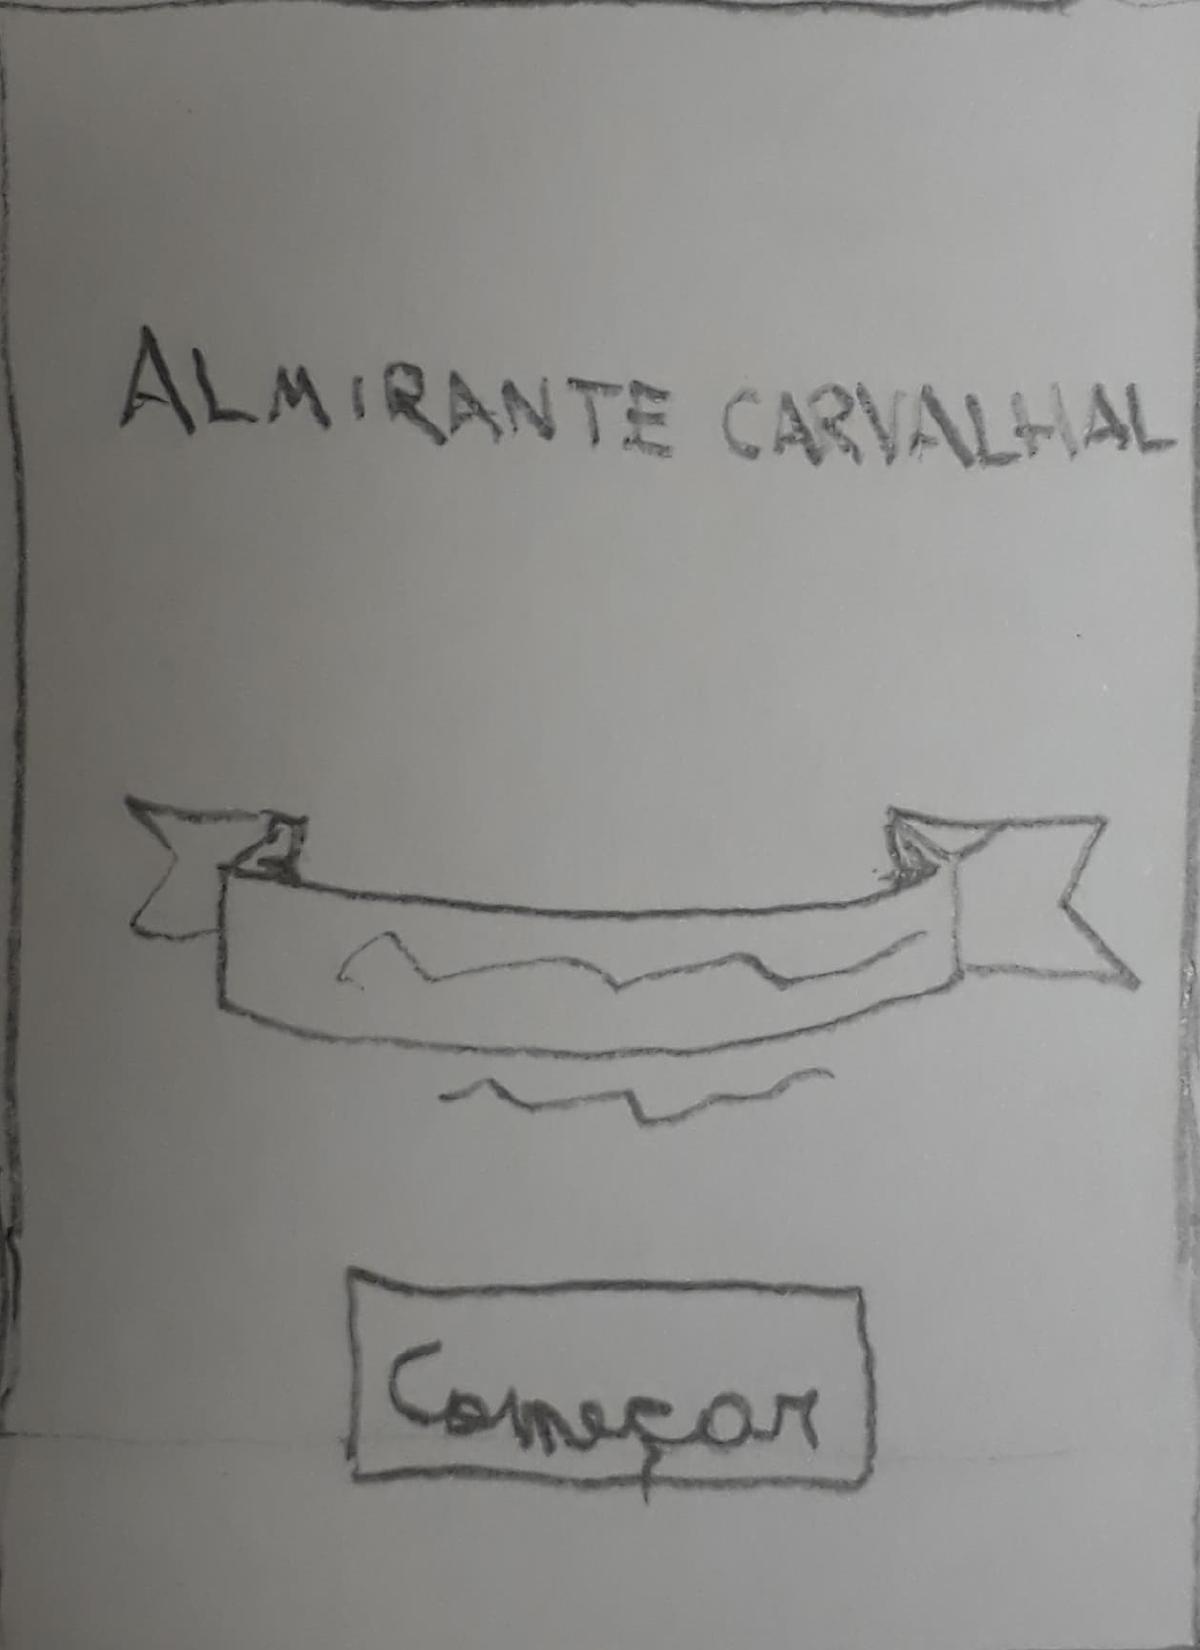 ALMIRANTE CARVALHAL
Começar